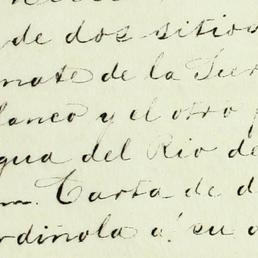 de dos sitios
mate de la Sier
lanco y el otro
gua del Rio de
m. Carta de d
rdiñola á su